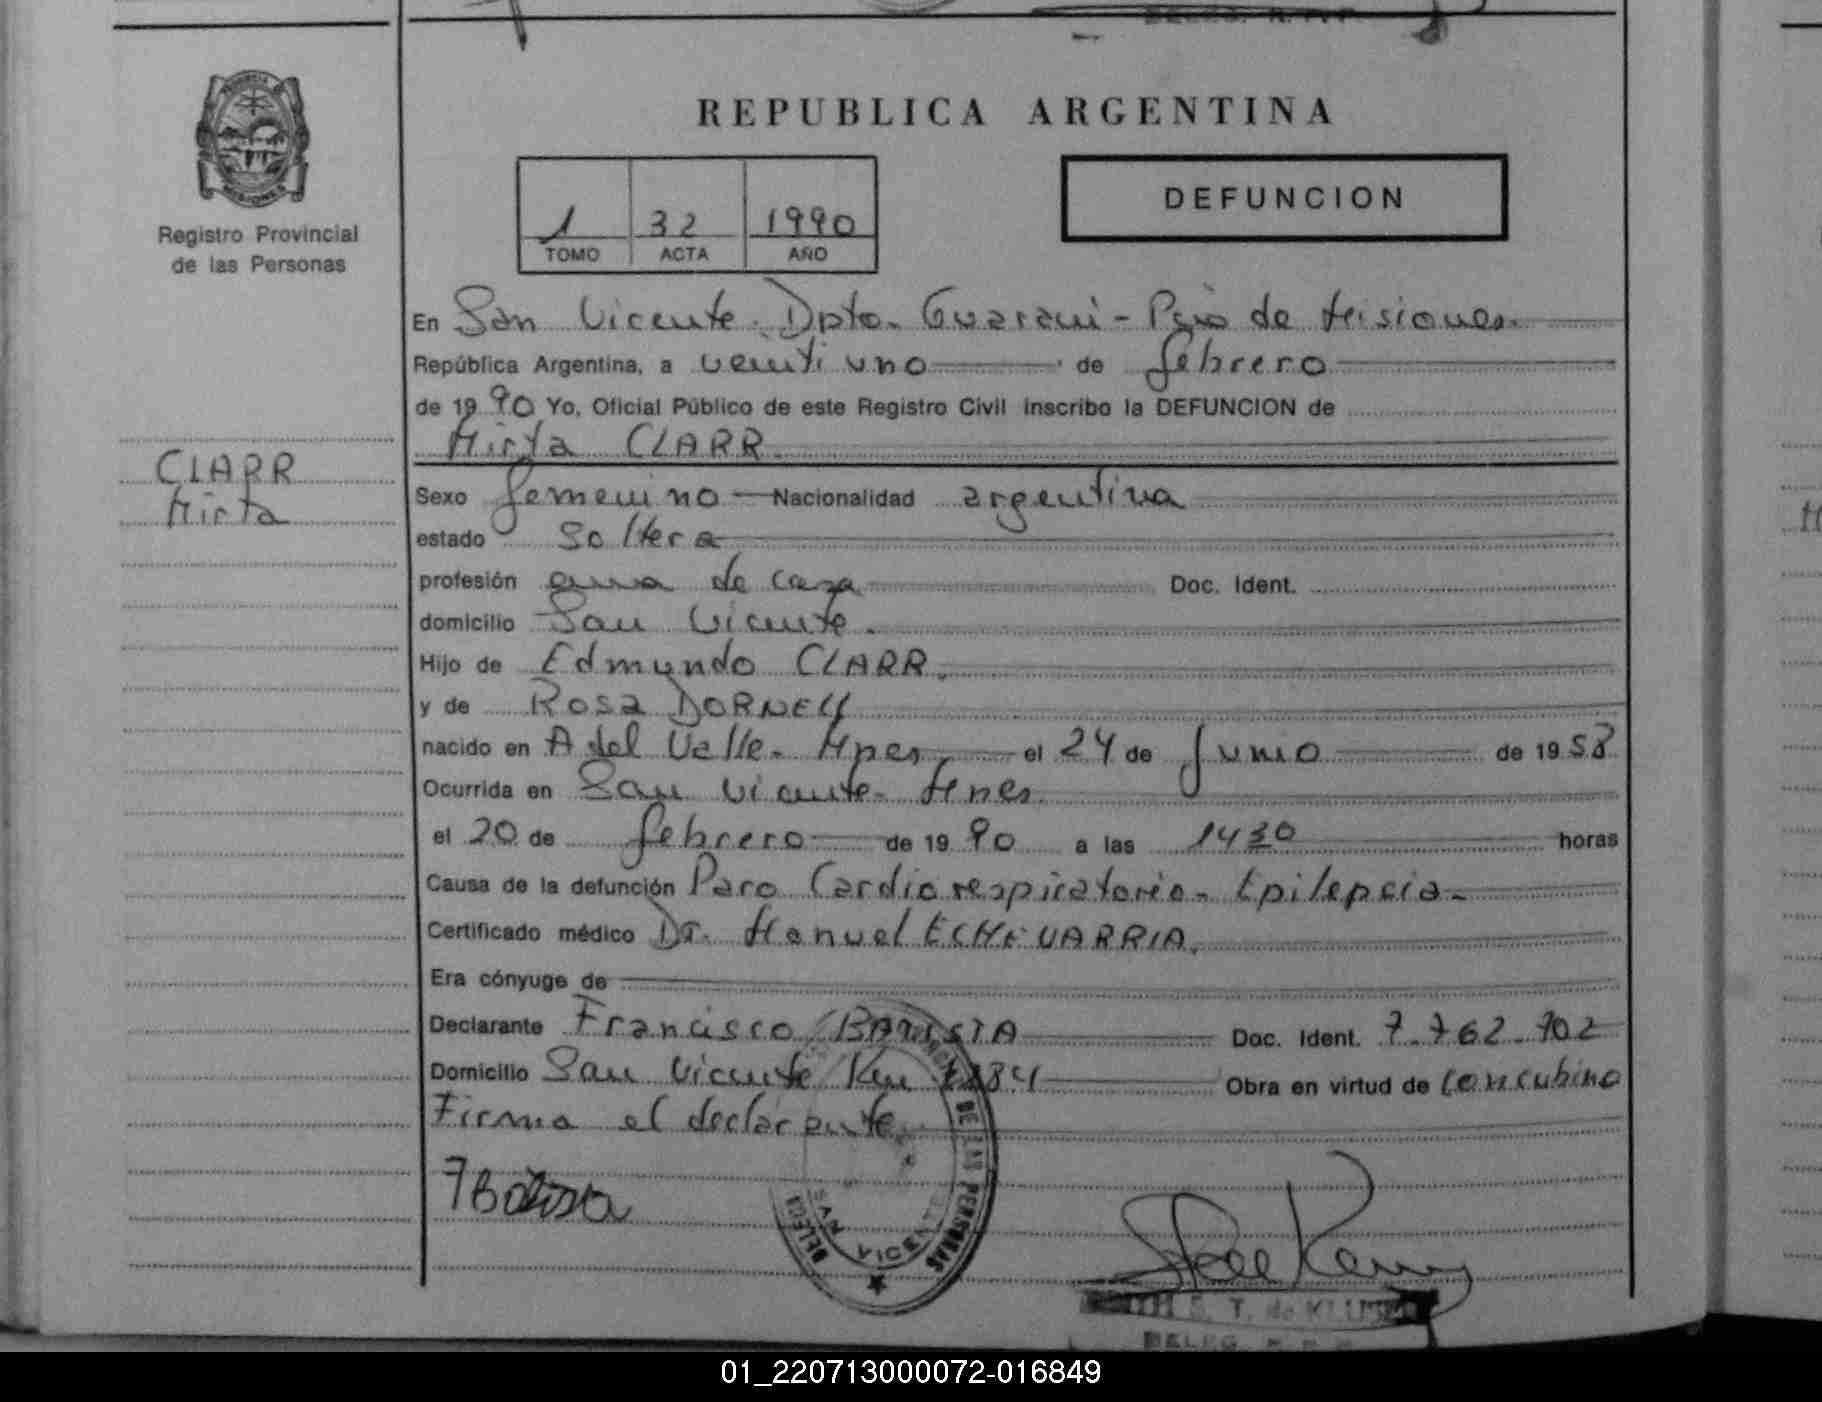 REPUBLICA ARGENTINA
Registro Provincial
de las Personas
1 32 1990
TOMO ACTA AÑO
DEFUNCION
En San Vicente. Dpto. Guaraní - Pcia de Misiones.
República Argentina, a veinti uno de febrero
de 19 90 Yo, Oficial Público de este Registro Civil inscribo la DEFUNCION de
Mirta CLARR.
CLARR
Mirta
Sexo femenino Nacionalidad argentina
estado soltera
profesión ama de casa Doc. Ident.
domicilio San Vicente.
Hijo de Edmundo CLARR.
y de Rosa
nacido en A del Valle. Mnes el 24 de Junio de 19 58
Ocurrida en San Vicente. Mnes.
el 20 de febrero de 19 90 a las 1430 horas
Causa de la defunción Paro Cardio respiratorio. Epilepcia.
Certificado médico Dr. Manuel ECHEVARRIA.
Era cónyuge de
Declarante Francisco BATISTA Doc. Ident. 7.762.702
Domicilio San Vicente Km Obra en virtud de concubino
Firma el declarante.
DE LAS PERSONAS
SAN VICENTE
DELEG.
T. de
DELEG.
01_220713000072-016849